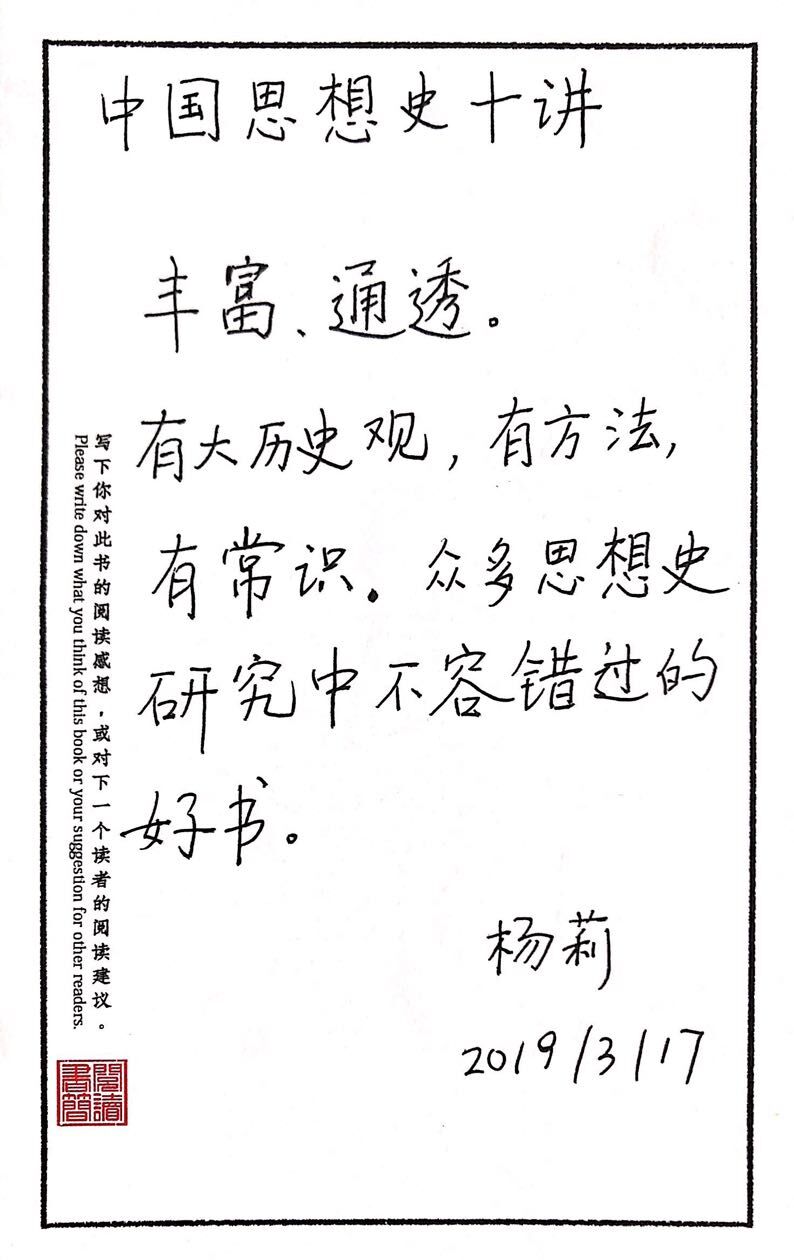 中国思想史十讲
丰富、通透。
有大历史观,有方法,
有常识。众多思想史
研究中不容错过的
好书。
杨莉
2019/3/17
写下你对此书的阅读感想,或对下一个读者的阅读建议。
Please write down what you think of this book or your suggestion for other readers.
閱讀
書簡